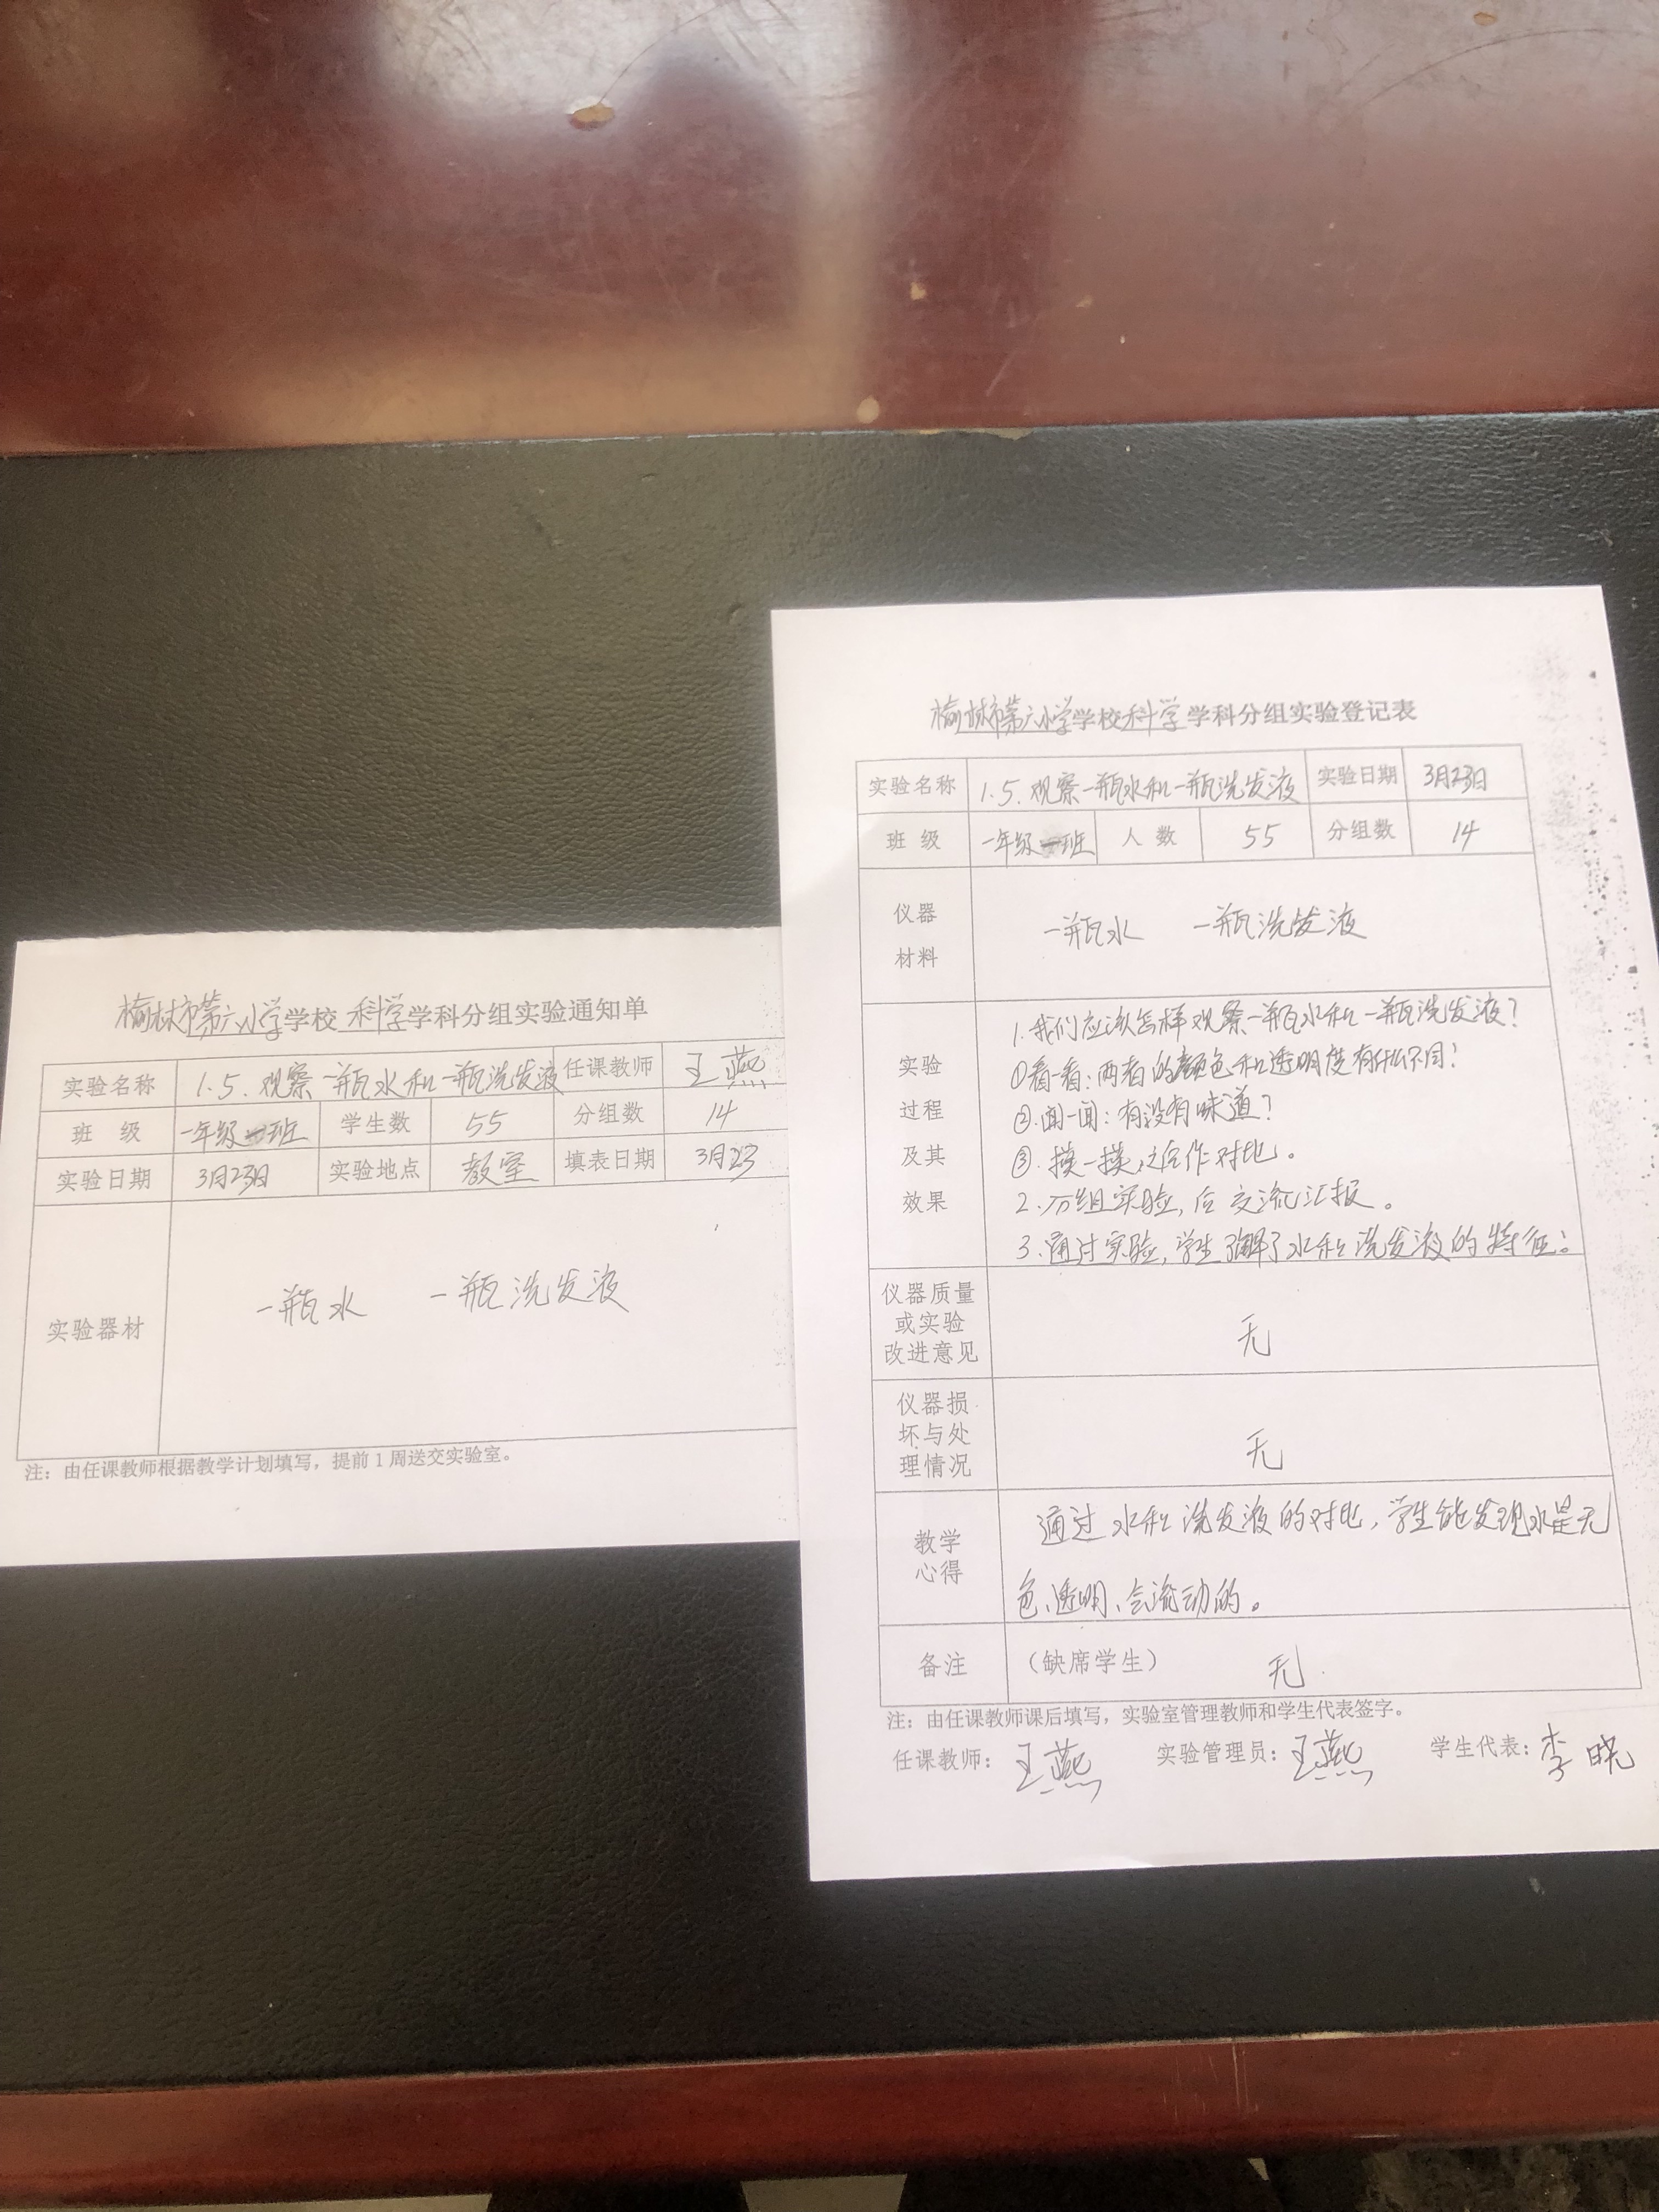 榆林市第六小学学校科学学科分组实验通知单
实验名称 1.5.观察一瓶水和一瓶洗发液 任课教师 王燕
班 级 一年级一班 学生数 55 分组数 14
实验日期 3月23日 实验地点 教室 填表日期 3月23
实验器材 一瓶水 一瓶洗发液
注：由任课教师根据教学计划填写，提前1周送交实验室。
榆林市第六小学学校科学学科分组实验登记表
实验名称 1.5.观察一瓶水和一瓶洗发液 实验日期 3月23日
班 级 一年级一班 人 数 55 分组数 14
仪器
材料
一瓶水 一瓶洗发液
实验
过程
及其
效果
1.我们应该怎样观察一瓶水和一瓶洗发液？
①看一看：两者的颜色和透明度有什么不同？
②.闻一闻：有没有味道？
③.摸一摸,合作对比。
2.分组实验，后交流汇报。
3.通过实验，学生了解了水和洗发液的特征。
仪器质量
或实验
改进意见
无
仪器损
坏与处
理情况
无
教学
心得
通过水和洗发液的对比，学生能发现水是无
色、透明、会流动的。
备注 （缺席学生） 无
注：由任课教师课后填写，实验室管理教师和学生代表签字。
任课教师：王燕 实验管理员：王燕 学生代表：李晓